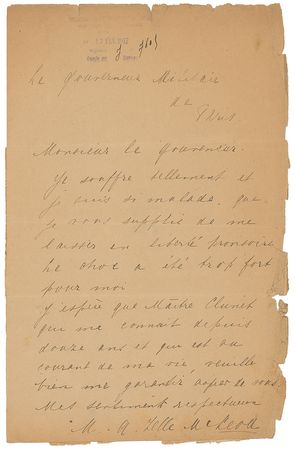 Le Gouverneur Militair
de
Paris.
Monsieur le Gouverneur.
Je souffre tellement et
je suis si malade, que
je vous supplie de me
laisser en liberté provisoire
Le choc a été trop fort
pour moi
J'espère que Maître Clunet
qui me connait depuis
douze ans et qui est au
courant de ma vie, veuille
bien me garantir auprès de vous.
Mes sentiments respectueux
M. G. Zelle McLeod